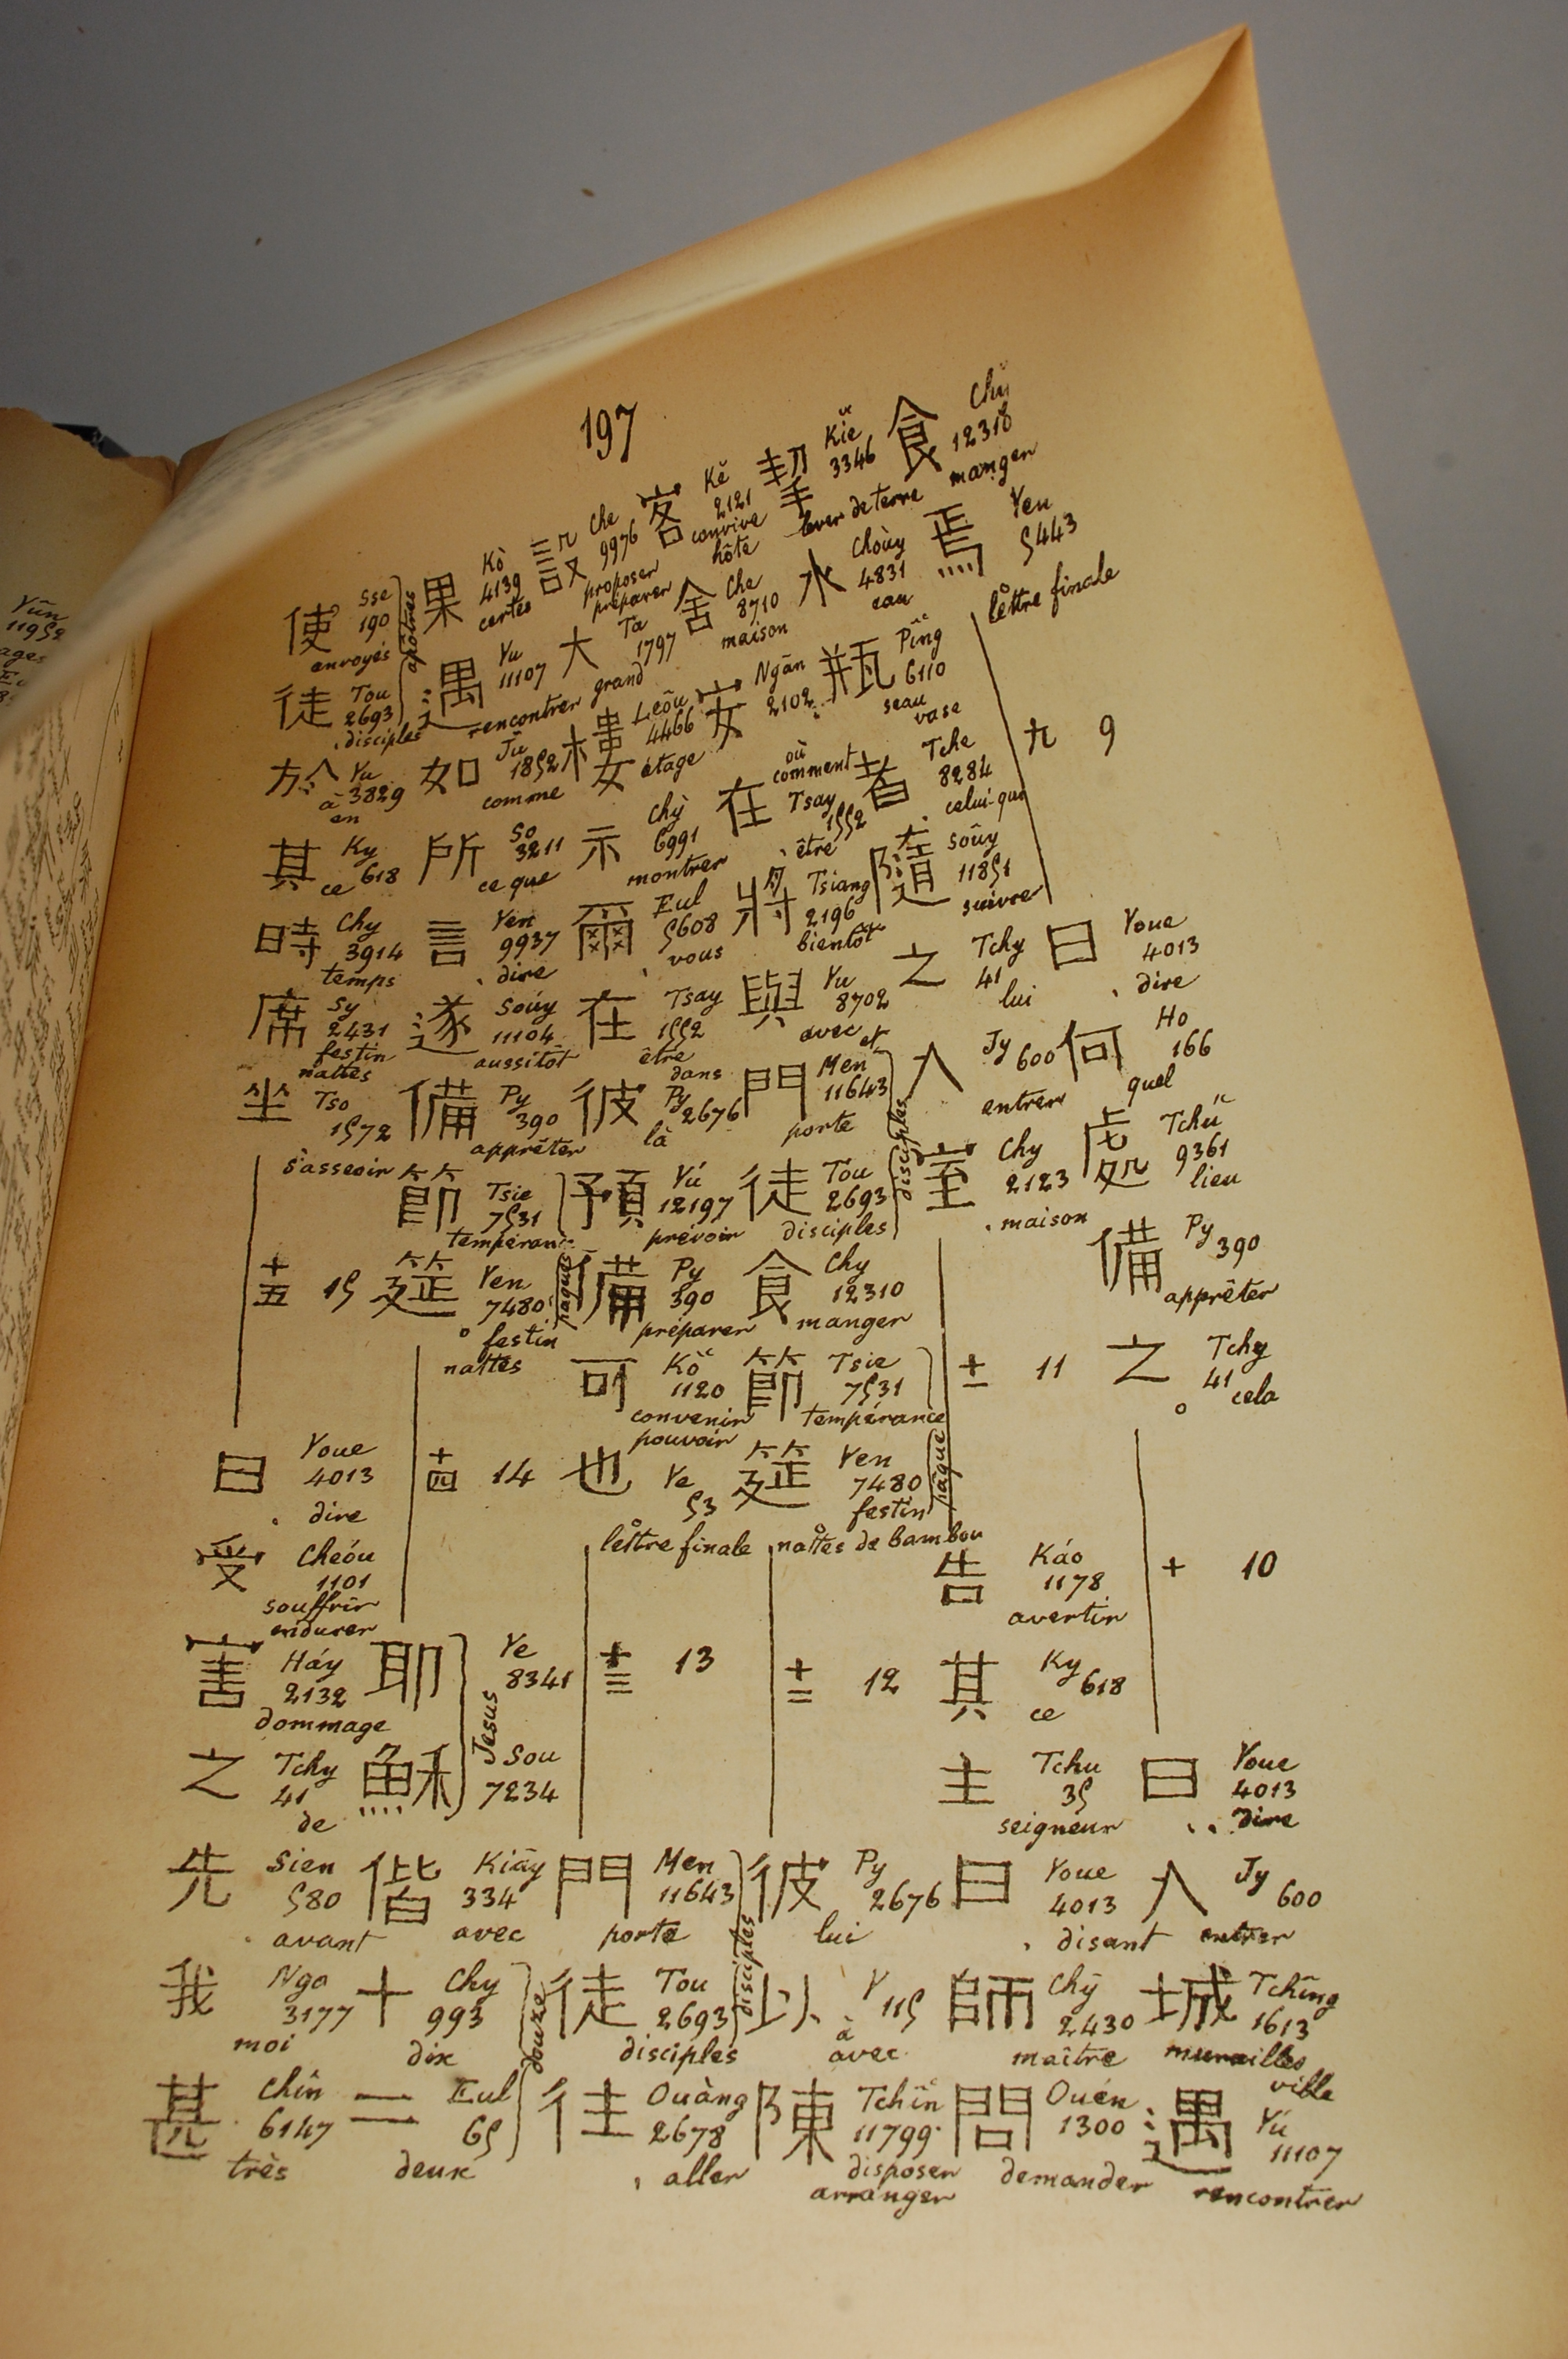 197
食 Chy 12310 manger
焉 Yen 5443 lettre finale
九 9
曰 Youe 4013 dire
何 Ho 166 quel
處 Tchŭ 9361 lieu
備 Py 390 apprêter
之 Tchy 41 cela
十 10
曰 Youe 4013 dire
入 Jy 600 entrer
城 Tchîng 1613 murailles ville
遇 Yú 11107 rencontrer
挈 Kie 3346 lever de terre
水 Choùy 4831 eau
瓶 Pîng 6110 seau vase
者 Tche 8284 celui-qui
隨 Soûy 11851 suivre
之 Tchy 41 lui
入 Jy 600 entrer
室 Chy 2123 maison
十一 11
告 Káo 1178 avertir
其 Ky 618 ce
主 Tchu 35 seigneur
曰 Youe 4013 disant
師 Chy 2430 maître
問 Ouén 1300 demander
客 Kĕ 2121 convive hôte
舍 Che 8710 maison
安 Ngān 2102 où comment
在 Tsay 1552 être
將 Tsiang 2196 bientôt
與 Yu 8702 avec et
門 Men 11643 porte
徒 Tou 2693 disciples
disciples
食 Chy 12310 manger
節 Tsie 7531 tempérance
筵 Yen 7480 festin nattes de bambou
pâque
十二 12
彼 Py 2676 lui
以 Y 115 à avec
陳 Tchîn 11799 disposer arranger
設 Che 9976 proposer préparer
大 Ta 1797 grand
樓 Leôu 4466 étage
示 Chy 6991 montrer
爾 Eul 5608 vous
在 Tsay 1552 être dans
彼 Py 2676 là
預 Yú 12197 prévoir
備 Py 390 préparer
可 Kŏ 1120 convenir pouvoir
也 Ye 53 lettre finale
十三 13
門 Men 11643 porte
徒 Tou 2693 disciples
disciples
往 Ouàng 2678 aller
果 Kò 4139 certes
遇 Yu 11107 rencontrer
如 Jû 1852 comme
所 So 3211 ce que
言 Yen 9937 dire
遂 Soúy 11104 aussitôt
備 Py 390 apprêter
節 Tsie 7531 tempérance
筵 Yen 7480 festin nattes
pâque
十四 14
耶 Ye 8341
穌 Sou 7234
Jesus
偕 Kiāy 334 avec
十 Chy 993 dix
二 Eul 65 deux
douze
使 Sse 190 envoyés
徒 Tou 2693 disciples
apôtres
於 Yu 3829 à en
其 Ky 618 ce
時 Chy 3914 temps
席 Sy 2431 festin nattes
坐 Tso 1572 s'asseoir
十五 15
曰 Youe 4013 dire
受 Cheóu 1101 souffrir endurer
害 Háy 2132 dommage
之 Tchy 41 de
先 Sien 580 avant
我 Ngo 3177 moi
甚 Chin 6147 très